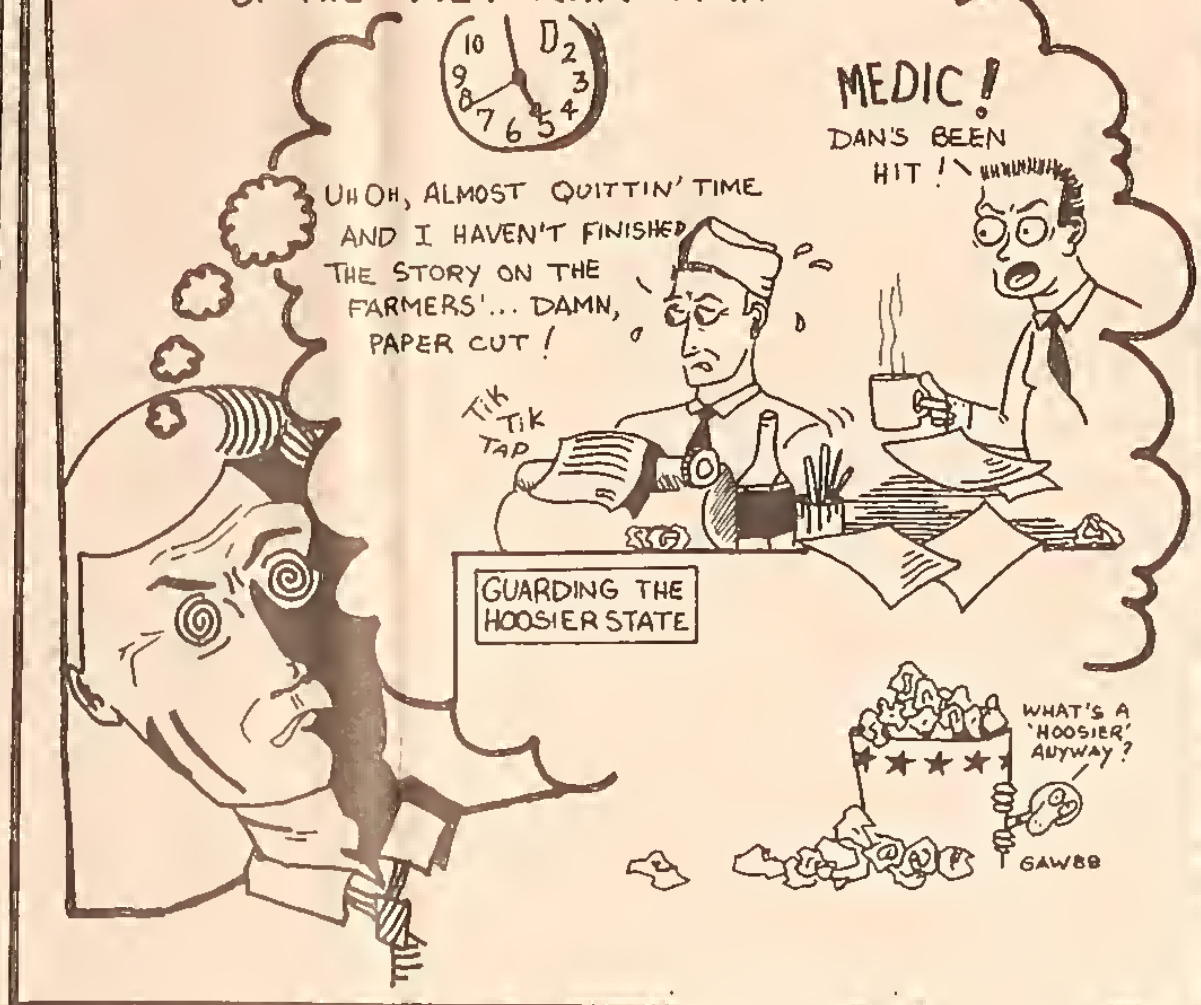 10
2
9
3
8
4
7
6
5
MEDIC!
DAN'S BEEN
HIT!
UH OH, ALMOST QUITTIN' TIME
AND I HAVEN'T FINISHED
THE STORY ON THE
FARMERS'... DAMN,
PAPER CUT!
TIK
TIK
TAP
GUARDING THE
HOOSIER STATE
WHAT'S A
'HOOSIER'
ANYWAY?
GAW88